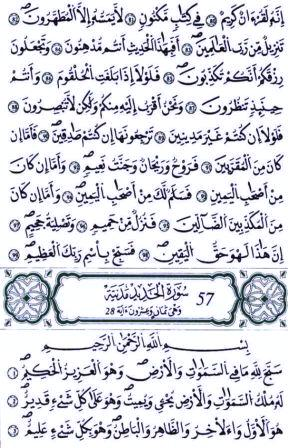 إِنَّهُۥ لَقُرْءَانٌ كَرِيمٌ فِى كِتَٰبٍ مَّكْنُونٍ لَّا يَمَسُّهُۥٓ إِلَّا ٱلْمُطَهَّرُونَ
تَنزِيلٌ مِّن رَّبِّ ٱلْعَٰلَمِينَ أَفَبِهَٰذَا ٱلْحَدِيثِ أَنتُم مُّدْهِنُونَ وَتَجْعَلُونَ
رِزْقَكُمْ أَنَّكُمْ تُكَذِّبُونَ فَلَوْلَآ إِذَا بَلَغَتِ ٱلْحُلْقُومَ وَأَنتُمْ
حِينَئِذٍ تَنظُرُونَ وَنَحْنُ أَقْرَبُ إِلَيْهِ مِنكُمْ وَلَٰكِن لَّا تُبْصِرُونَ
فَلَوْلَآ إِن كُنتُمْ غَيْرَ مَدِينِينَ تَرْجِعُونَهَآ إِن كُنتُمْ صَٰدِقِينَ فَأَمَّآ إِن
كَانَ مِنَ ٱلْمُقَرَّبِينَ فَرَوْحٌ وَرَيْحَانٌ وَجَنَّتُ نَعِيمٍ وَأَمَّآ إِن كَانَ
مِنْ أَصْحَٰبِ ٱلْيَمِينِ فَسَلَٰمٌ لَّكَ مِنْ أَصْحَٰبِ ٱلْيَمِينِ وَأَمَّآ إِن كَانَ
مِنَ ٱلْمُكَذِّبِينَ ٱلضَّآلِّينَ فَنُزُلٌ مِّنْ حَمِيمٍ وَتَصْلِيَةُ جَحِيمٍ
إِنَّ هَٰذَا لَهُوَ حَقُّ ٱلْيَقِينِ فَسَبِّحْ بِٱسْمِ رَبِّكَ ٱلْعَظِيمِ
57 سُورَةُ ٱلْحَدِيدِ مَدَنِيَّة
وَهِىَ ثَمَانٍ وَعِشْرُونَ ءَايَة 28
بِسْمِ ٱللَّهِ ٱلرَّحْمَٰنِ ٱلرَّحِيمِ
سَبَّحَ لِلَّهِ مَا فِى ٱلسَّمَٰوَٰتِ وَٱلْأَرْضِ وَهُوَ ٱلْعَزِيزُ ٱلْحَكِيمُ
لَهُۥ مُلْكُ ٱلسَّمَٰوَٰتِ وَٱلْأَرْضِ يُحْىِۦ وَيُمِيتُ وَهُوَ عَلَىٰ كُلِّ شَىْءٍ قَدِيرٌ
هُوَ ٱلْأَوَّلُ وَٱلْءَاخِرُ وَٱلظَّٰهِرُ وَٱلْبَاطِنُ وَهُوَ بِكُلِّ شَىْءٍ عَلِيمٌ